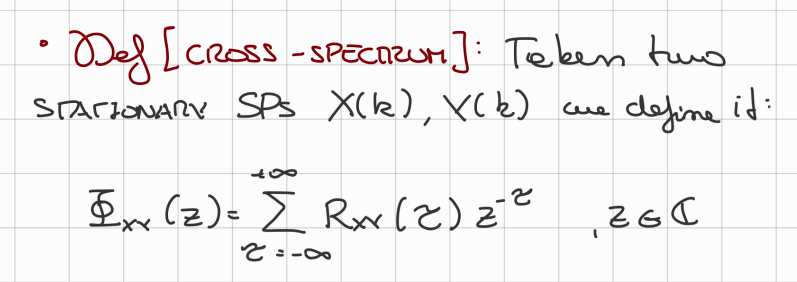 • Def [CROSS-SPECTRUM]: Taken two
STATIONARY SPs X(k), Y(k) we define it:
Φxy (z) = +∞ Σ τ=-∞ Rxy (τ) z^-τ , z ∈ ℂ